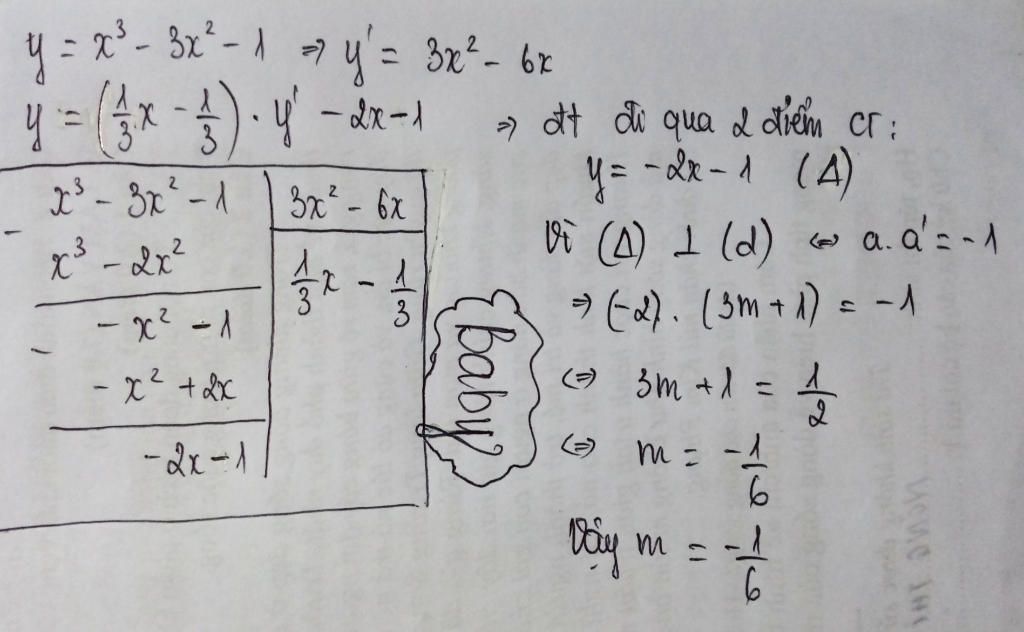 y = x³ - 3x² - 1 ⇒ y' = 3x² - 6x
y = (1/3 x - 1/3) . y' - 2x - 1 ⇒ đt đi qua 2 điểm CT:
y = -2x - 1 (Δ)
x³ - 3x² - 1 | 3x² - 6x
- x³ - 2x² | 1/3 x - 1/3
- x² - 1
- - x² + 2x
-2x - 1
baby
Vì (Δ) ⊥ (d) ⇔ a . a' = -1
⇒ (-2) . (3m + 1) = -1
⇔ 3m + 1 = 1/2
⇔ m = -1/6
Vậy m = -1/6